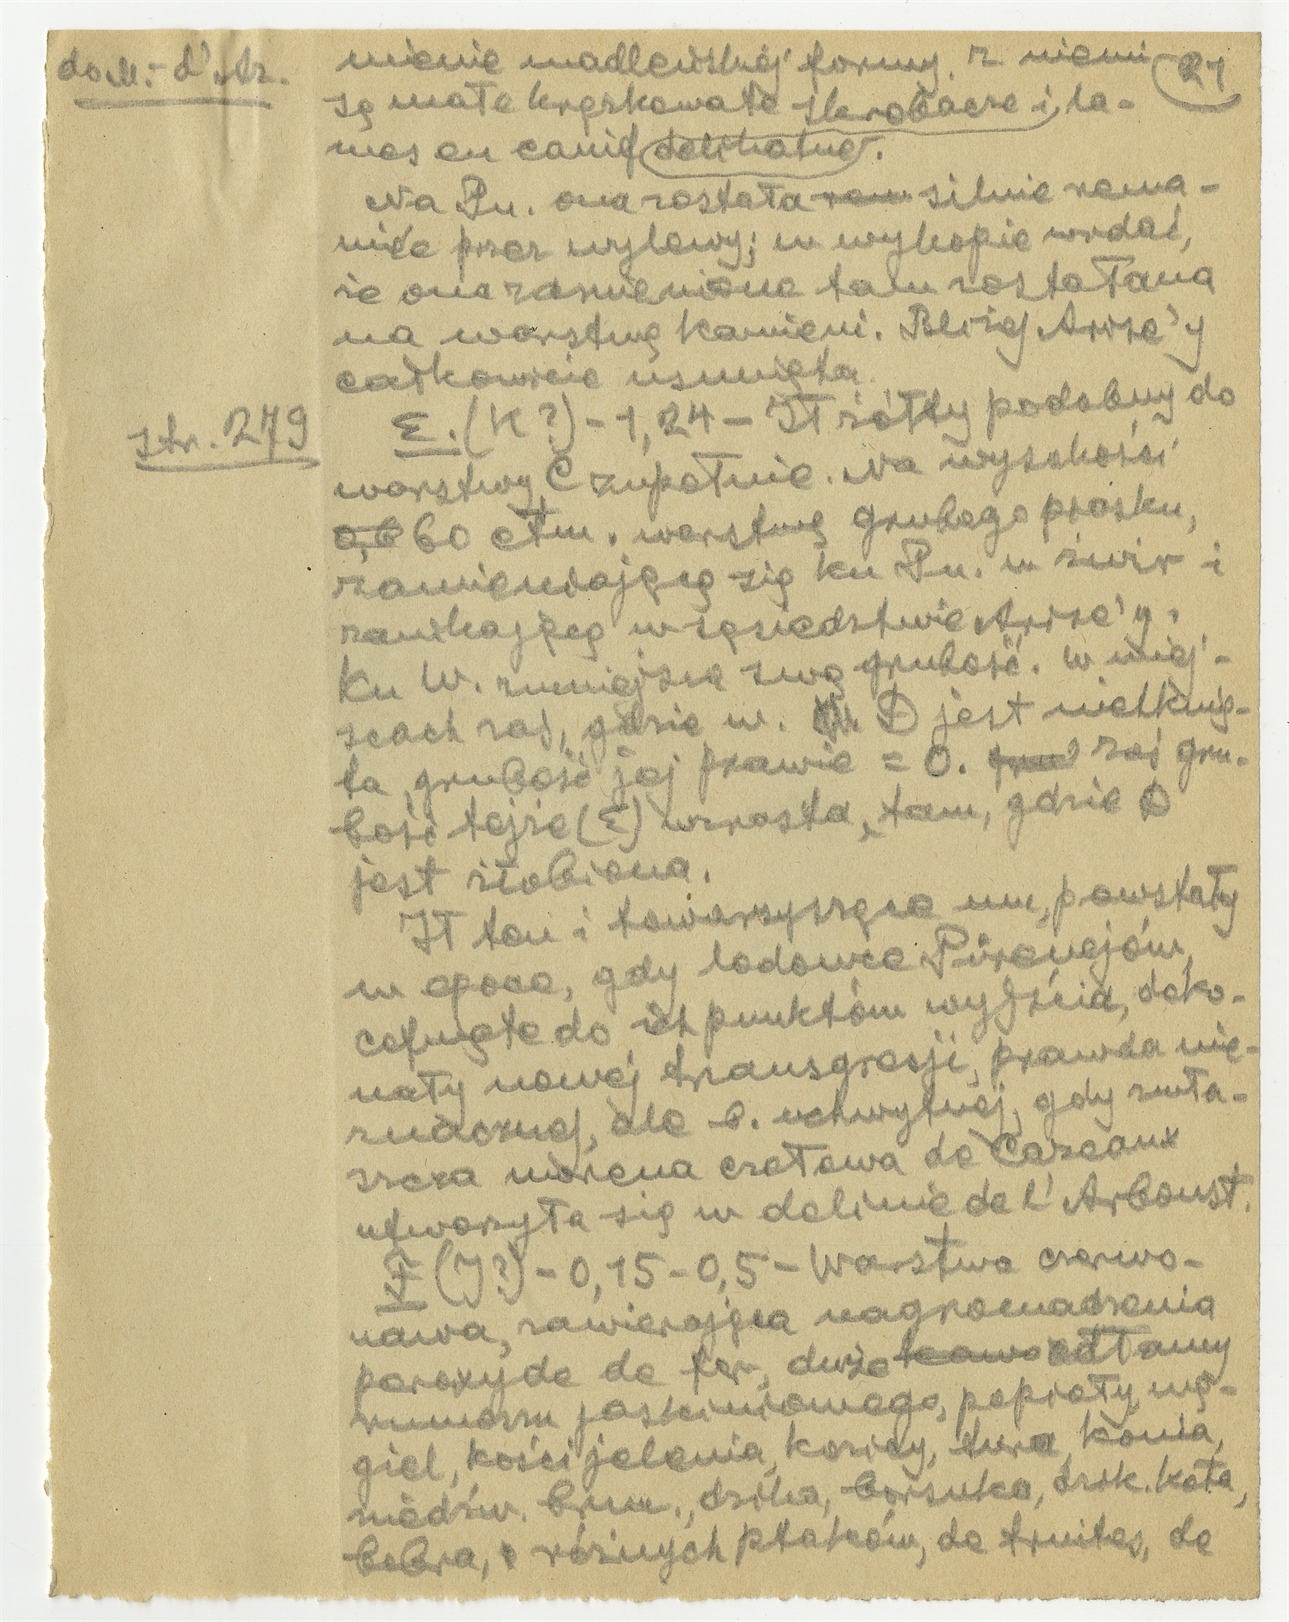 do M.- d'Az.
21
mienie madleńskiej formy, z niemi
są małe krążkowate skrobacze i la-
mes en canif delikatne.
Na Pn. ona została silnie
przez wylewy; w wykopie widać,
że ona zamieniona tam została na
na warstwę kamieni. Bliżej Arise'y
całkowicie usunięta.
str. 279
E. (K?) - 1,24 - Ił żółty podobny do
warstwy C zupełnie. Na wysokości
0,6 60 ctm. warstwę grubego piasku,
zamieniającą się ku Pn. w żwir i
zanikającą w sąsiedztwie Arise'y.
Ku W. zmniejsza swą grubość. W miej-
scach zaś, gdzie w. D jest nietknię-
ta, grubość jej prawie = 0. zaś gru-
bość tejże (E) wzrosta, tam, gdzie D
jest żłobiona.
Ił ten i towarzyszące mu, powstały
w epoce, gdy lodowce Pirenejów,
cofnięte do ich punktów wyjścia, doko-
nały nowej transgresji, prawda nie-
znacznej, ale b. uchwytnej, gdy zwła-
szcza morena czołowa de Cazeaux
utworzyła się w dolinie de l'Arboust.
F (J?) - 0,15-0,5 - Warstwa czerwo-
nawa, zawierająca nagromadzenia
peroxyde de fer, duże odłamy
rumoszu jaskiniowego, popioły, wę-
giel, kości jelenia, kozicy, tura, konia,
niedźw. brun., dzika, borsuka, dzik. kota,
bobra, różnych ptaków, de truites, de